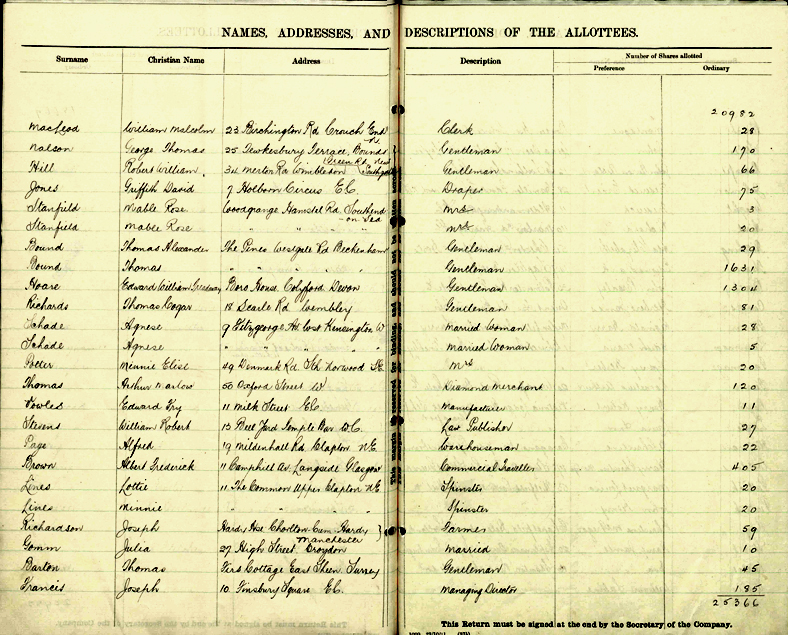 NAMES, ADDRESSES, AND DESCRIPTIONS OF THE ALLOTTEES.
Surname Christian Name Address Description Number of Shares allotted
Preference Ordinary
20982
MacLeod William Malcolm 23 Birchington Rd Crouch End N Clerk 28
Nalson George Thomas 25 Tewkesbury Terrace, Bounds Green Rd New Southgate Gentleman 170
Hill Robert William 34 Merton Rd Wimbledon Gentleman 66
Jones Griffith David 7 Holborn Circus E.C. Draper 75
Stanfield Mable Rose Woodgrange Hamstel Rd Southend on Sea Mrs 3
Stanfield Mable Rose " " " " Mrs 20
Bound Thomas Alexander The Pines Westgate Rd Beckenham Gentleman 29
Bound Thomas " " " " Gentleman 1631
Hoare Edward William Boro House Colyford Devon Gentleman 1304
Richards Thomas Cogar 18 Searle Rd Wembley Gentleman 81
Schade Agnese 9 Fitzgeorge Av West Kensington W Married Woman 28
Schade Agnese " " " " Married Woman 5
Minnie Elise 49 Denmark Rd Sth Norwood SE Mrs 20
Thomas Arthur Marlow 50 Oxford Street W Diamond Merchant 120
Vowles Edward Fry 11 Milk Street E.C. Manufacturer 11
Stevens William Robert 13 Bell Yard Temple Bar W.C. Law Publisher 27
Page Alfred 19 Mildenhall Rd Clapton N.E. Warehouseman 22
Brown Albert Frederick 11 Camphill Av. Langside Glasgow Commercial Traveller 405
Lines Lottie 11 The Common Upper Clapton NE Spinster 20
Lines Minnie " " " " Spinster 20
Richardson Joseph Hardy Hse Chorlton-Cum-Hardy Manchester Farmer 59
Gomm Julia 27 High Street Croydon Married 10
Barton Thomas Firs Cottage East Sheen Surrey Gentleman 45
Francis Joseph 10 Finsbury Square E.C. Managing Director 185
25366
This Return must be signed at the end by the Secretary of the Company.